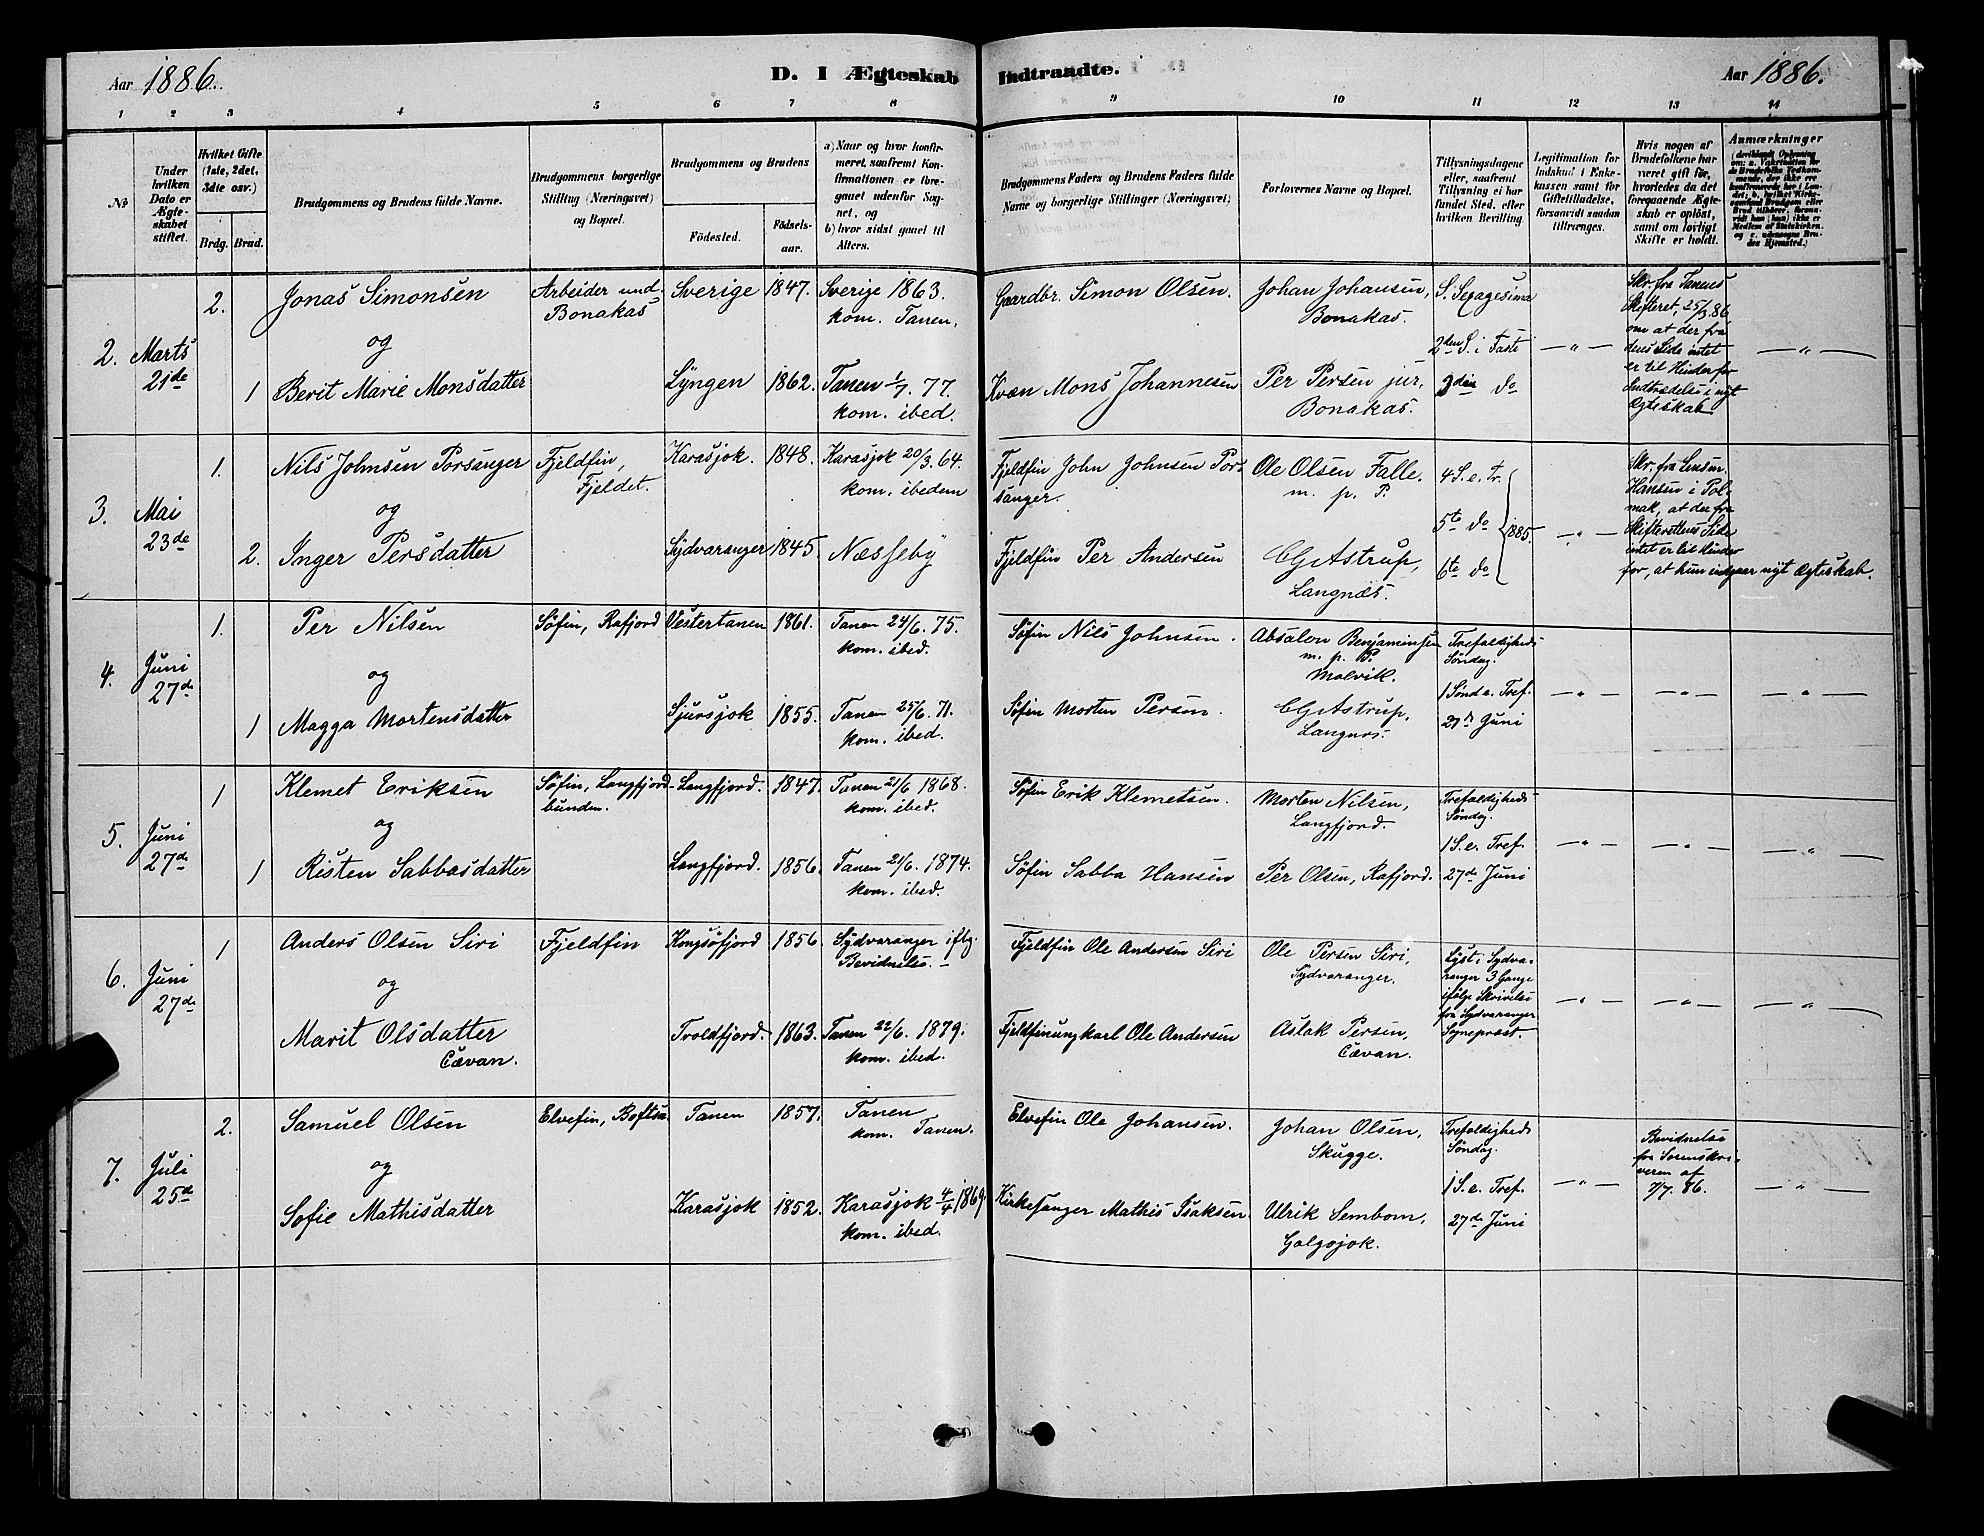 Aar 1886.
D. I Ægteskab Indtraadte.
Aar 1886.
1 2 3 4 5 6 7 8 9 10 11 12 13 14
No
Under hvilken Dato er Ægteskabet stiftet.
Hvilket Gifte (1ste, 2det, 3die osv.)
Brdg. Brud.
Brudgommens og Brudens fulde Navne.
Brudgommens borgerlige Stilling (Næringsvei) og Bopæl.
Brudgommens og Brudens
Födested.
Födselsaar.
a) Naar og hvor konfirmeret, saafremt Konfirmationen er foregaaet udenfor Sognet, og
b) hvor sidst gaaet til Alters.
Brudgommens Faders og Brudens Faders fulde Navne og borgerlige Stillinger (Næringsvei)
Forlovernes Navne og Bopæl.
Tillysningsdagene eller, saafremt Tillysning ei har fundet Sted, efter hvilken Bevilling.
Legitimation for Indskud i Enkekassen samt for Giftetilladelse, forsaavidt saadan tiltrænges.
Hvis nogen af Brudefolkene har været gift før, hvorledes da det foregaaende Ægteskab er oplöst, samt om lovligt Skifte er holdt.
Anmærkninger
2. Marts 21de
2.
Jonas Simonsen
og
1 Berit Marie Monsdatter
Arbeider und. Bonakas
Sverige 1847. Sverige 1863. kom. Tanen.
Lyngen 1862. Tanen 1/7. 77. kom. ibed.
Gaardbr. Simon Olsen.
Kvæn Mons Johannesen
Johan Johansen, Bonakas.
Per Persen jur, Bonakas.
S. Sexagesima
2den S. i Faste
3die do
— " —
Skr. fra Tanens Skifteret, 25/3 86 om at der fra dens Side intet er til Hinder for Indtrædelse i nyt Ægteskab
— " —
3. Mai 23de
1. Nils Johnsen Porsanger
og
2. Inger Persdatter
Fjeldfin, Fjeldet.
Karasjok. 1848. Karasjok 20/3. 64. kom. ibedem
Sydvaranger 1845. Næsseby
Fjeldfin John Johnsen Porsanger.
Fjeldfin Per Andersen
Ole Olsen Falle. m. p. P.
CG Astrup, Langnæs.
4 S. e. Tr.
5te do
6te do
1885.
— " —
Skr. fra Lensm. Hansen i Polmak, at der fra Skifterettens Side intet er til Hinder for, at hun indgaar nyt Ægteskab.
4. Juni 27de
1. Per Nilsen
og
1 Magga Mortensdatter
Söfin, Rafjord
Vestertanen 1861. Tanen 24/6. 75. kom. ibed.
Sjursjok 1855. Tanen 25/6. 71. kom. ibed.
Söfin Nils Johnsen.
Söfin Morten Persen.
Absalon Benjaminsen m. p. P. Molvik.
CG Astrup, Langnæs.
Trefoldigheds Söndag.
1 Sönd e. Tref.
27de Juni
— " — — " — — " —
5. Juni 27de
1 Klemet Eriksen
og
1 Risten Sabbasdatter
Söfin, Langfjordbunden.
Langfjord. 1847. Tanen 21/6 1868. kom. ibed.
Langfjord. 1856. Tanen 21/6. 1874. kom. ibed.
Söfin Erik Klemetsen.
Söfin Sabba Hansen
Morten Nilsen, Langfjord.
Per Olsen, Rafjord.
Trefoldigheds Söndag.
1 S. e. Tref.
27de Juni
— " — — " — — " —
6. Juni 27de
1 Anders Olsen Siri
og
Marit Olsdatter Cævan.
Fjeldfin
Kongsöfjord 1856. Sydvaranger iflg. Bevidnelse.
Troldfjord. 1863. Tanen 22/6. 1879. kom. ibed.
Fjeldfin Ole Andersen Siri
Fjeldfinungkarl Ole Andersen
Ole Persen Siri, Sydvaranger.
Aslak Persen, Cævan.
Lyst i Sydvaranger 3 Gange ifølge Skrivelse fra Sydvaranger Sognepræst.
— " — — " — — " —
7. Juli 25de
2. Samuel Olsen
og
Sofie Mathisdatter
Elvefin, Boftsa.
Tanen 1857. Tanen kom. Tanen.
Karasjok 1852. Karasjok 4/4 1869. kom. ibed.
Elvefin Ole Johansen.
Kirkesanger Mathis Isaksen.
Johan Olsen, Skugge.
Ulrik Sembom, Galgojok.
Trefoldigheds Söndag.
1 S. e. Tref.
27de Juni
— " —
Bevidnelse fra Sorenskriveren af 7/7. 86.
— " —